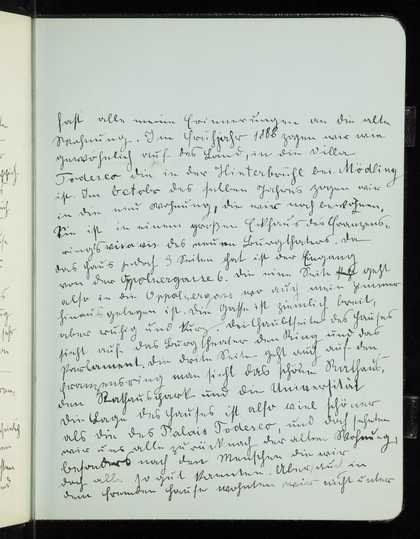 fast alle meine Erinnerungen an die alte
Wohnung. Im Frühjahr 1888 zogen wir wie
gewöhnlich auf das Land, in die Villa
Todesco die in der Hinterbrühl bei Mödling
ist. Im October des selben Jahres zogen wir
in die neue Wohnung, die wir noch bewohnen,
Sie ist in einem großen Eckhaus des Franzens-
rings vis a vis des neuen Burgtheaters. Da
das Haus jedoch 3 Seiten hat ist der Eingang
von der Oppolzergasse 6. die eine Seite geht
also in die Oppolzergasse wo auch mein Zimmer
hinaus gelegen ist. Die Gasse ist ziemlich breit,
aber ruhig und kurz, die Hauptseite des Hauses
sieht auf das Burgtheater den Ring und das
Parlament, die dritte Seite geht auch auf den
Franzensring man sieht das schöne Rathaus,
den Rathauspark und die Universität
die Lage des Hauses ist also viel schöner
als die des Palais Todesco, und doch sehnten
wir uns alle zurück nach der alten Wohnung,
besonders nach den Menschen die wir
doch alle so gut kannten. Aber auch in
dem fremden Hause wohnten wir nicht unter